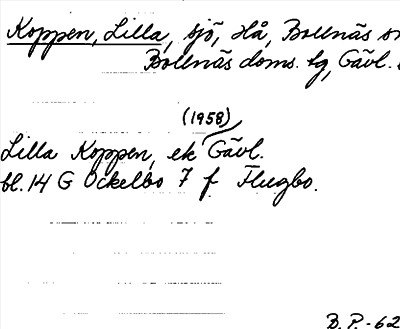 Koppen, Lilla, sjö, Hå, Bollnäs sn
Bollnäs doms. tg, Gävl.
(1958)
Lilla Koppen, ek Gävl.
bl. 14 G Ockelbo 7 f Flugbo.
B.P.-62